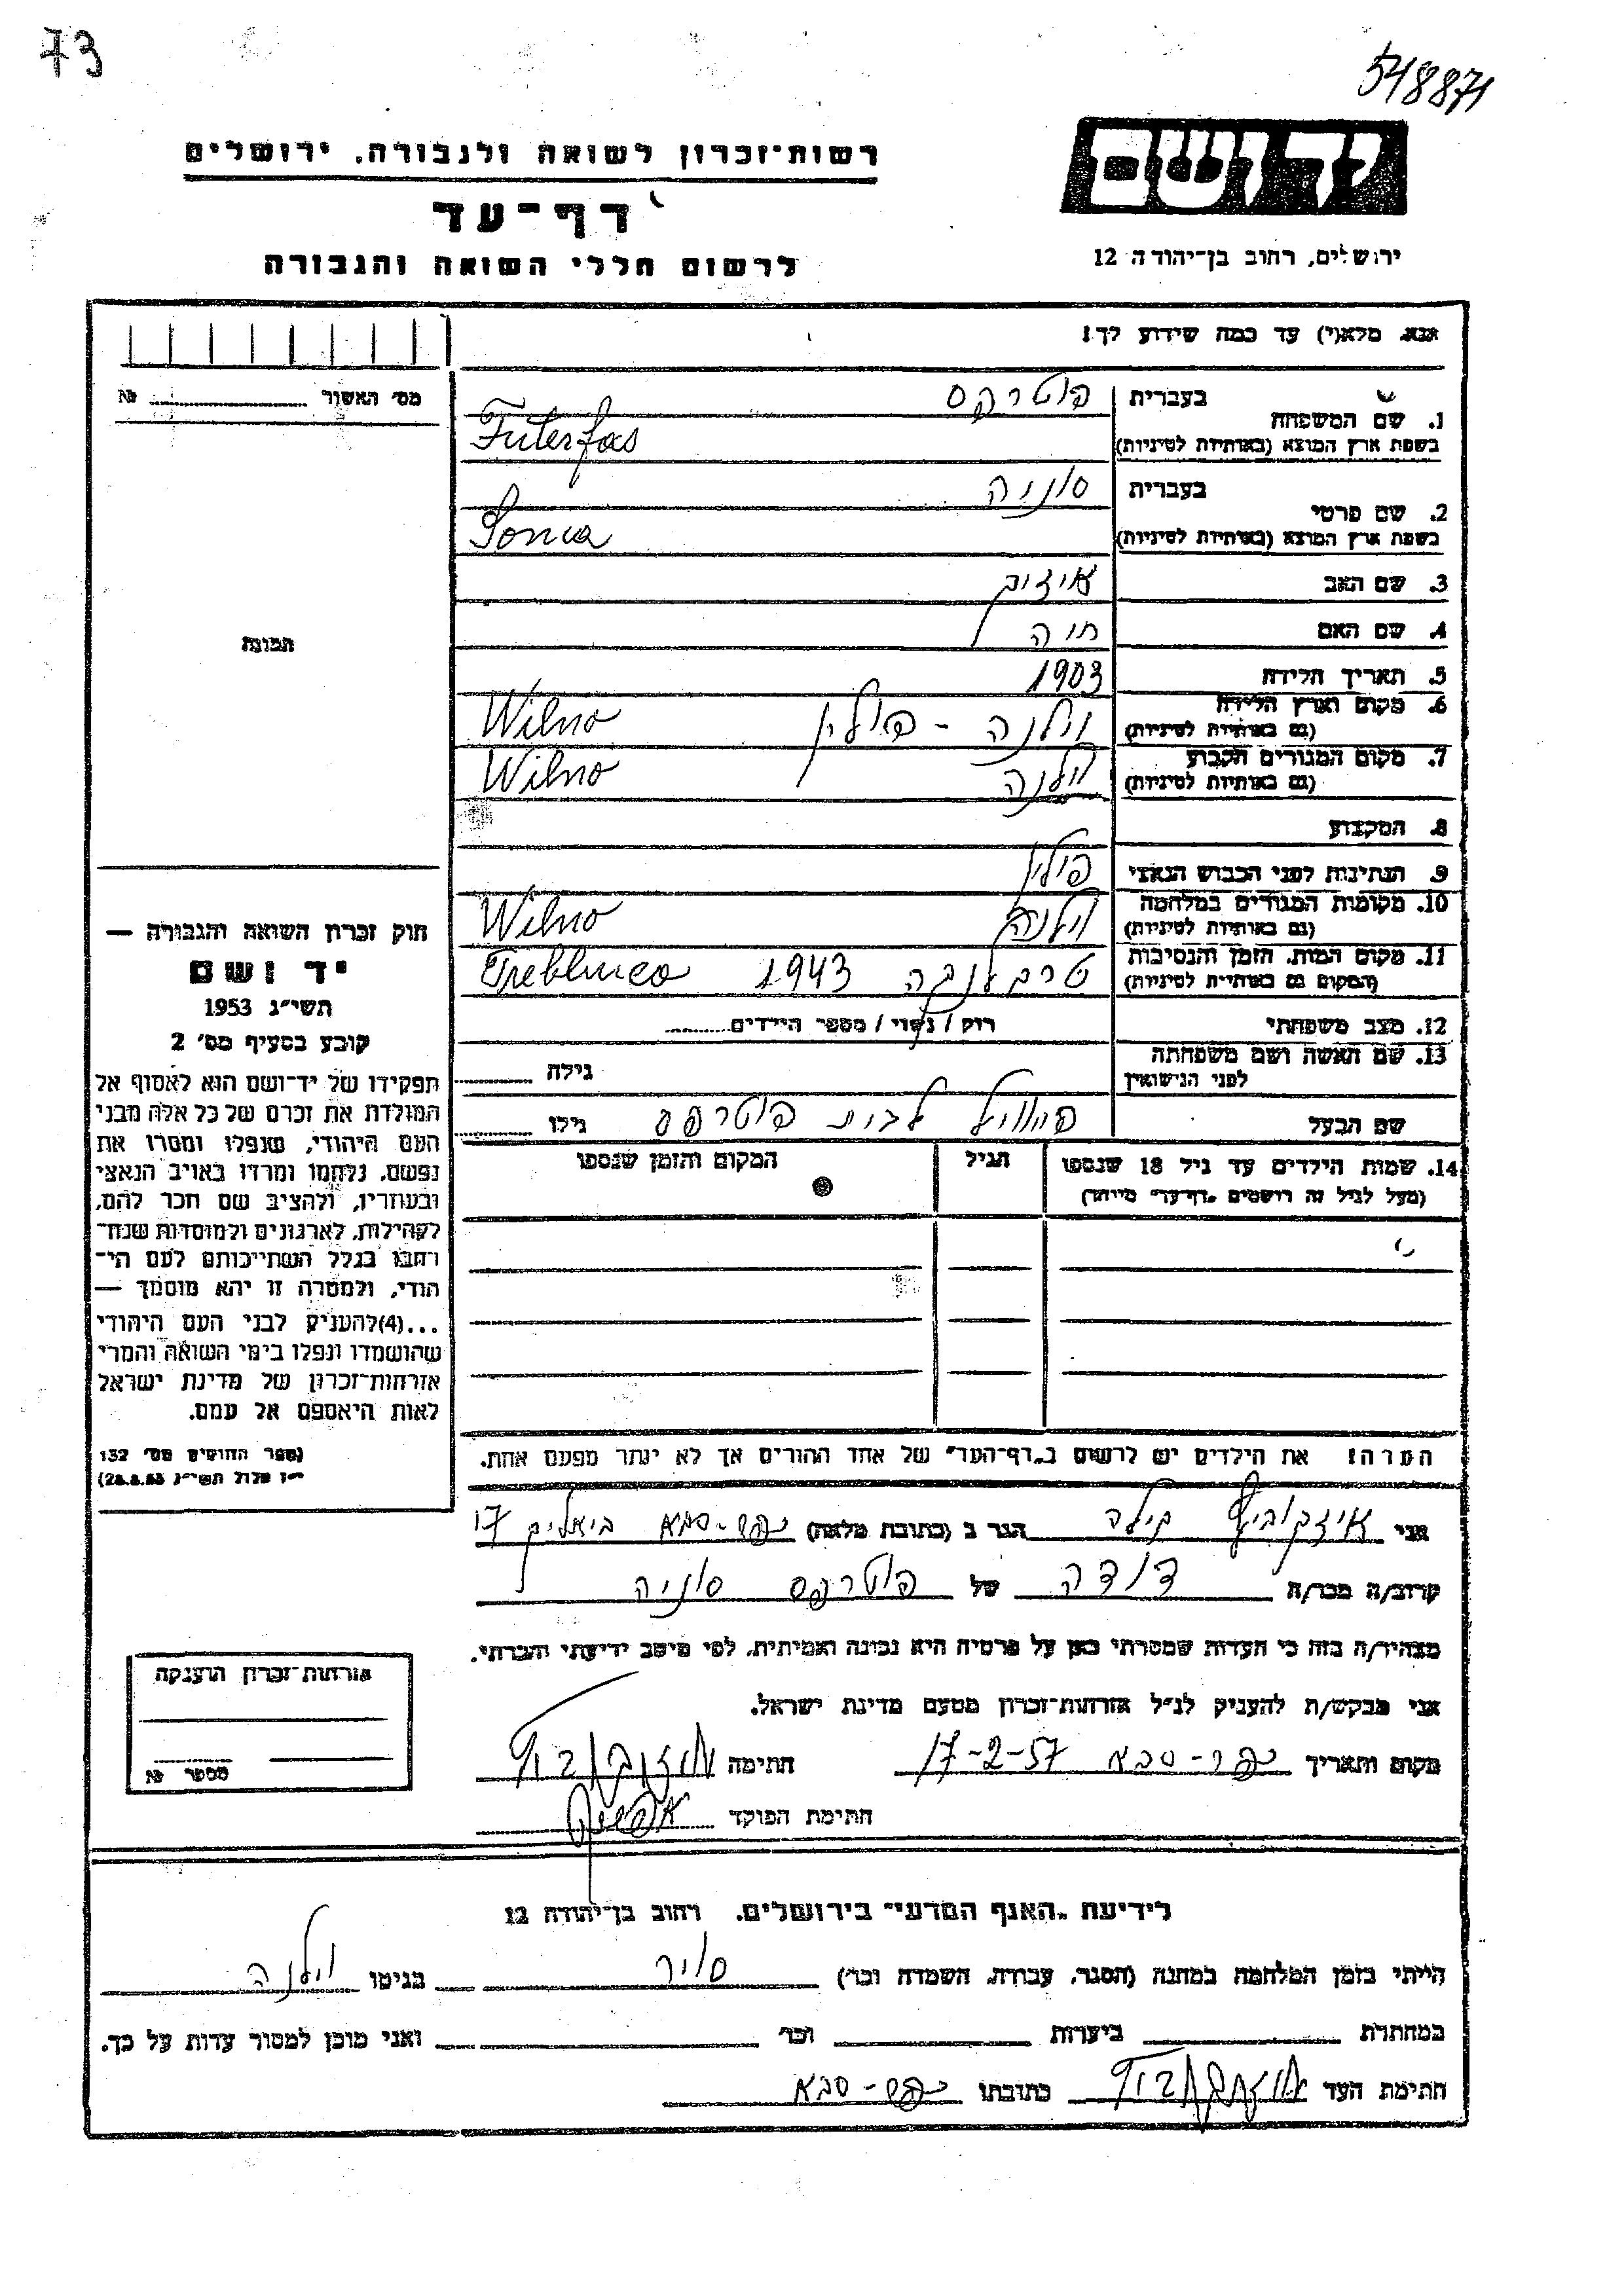 73
548871
יד ושם
רשות־זכרון לשואה ולגבורה, ירושלים
דף־עד
לרשום חללי השואה והגבורה
ירושלים, רחוב בן־יהודה 12
אנא, מלא(י) עד כמה שידוע לך!
מס׳ האשור № ........
1. שם המשפחה
בעברית פוטרפס
בשפת ארץ המוצא (באותיות לטיניות) Futerfas
2. שם פרטי
בעברית סוניה
בשפת ארץ המוצא (באותיות לטיניות) Sonia
3. שם האב איזיק
4. שם האם חיה
5. תאריך הלידה 1903
6. מקום וארץ הלידה (גם באותיות לטיניות) וילנה - פולין Wilno
7. מקום המגורים הקבוע (גם באותיות לטיניות) וילנה Wilno
8. המקצוע
9. הנתינות לפני הכבוש הנאצי פולין
10. מקומות המגורים במלחמה (גם באותיות לטיניות) וילנה Wilno
11. מקום המות, הזמן והנסיבות (המקום גם באותיות לטיניות) טרבלנקה 1943 Treblinca
12. מצב משפחתי רוק / נשוי / מספר הילדים........
13. שם האשה ושם משפחתה לפני הנישואין גילה ........
שם הבעל לבית פוטרפס גילו ........
14. שמות הילדים עד גיל 18 שנספו
(מעל לגיל זה רושמים "דף־עד" מיוחד)
הגיל
המקום והזמן שנספו
תמונה
חוק זכרון השואה והגבורה —
יד ושם
תשי״ג 1953
קובע בסעיף מס׳ 2
תפקידו של יד־ושם הוא לאסוף אל
המולדת את זכרם של כל אלה מבני
העם היהודי, שנפלו ומסרו את
נפשם, נלחמו ומרדו באויב הנאצי
ובעוזריו, ולהציב שם וזכר להם,
לקהילות, לארגונים ולמוסדות שנח־
רבו בגלל השתייכותם לעם הי־
הודי, ולמטרה זו יהא מוסמך —
...(4)להעניק לבני העם היהודי
שהושמדו ונפלו בימי השואה והמרי
אזרחות־זכרון של מדינת ישראל
לאות היאספם אל עמם.
(ספר החוקים מס׳ 132
י״ז אלול תשי״ג 28.8.53)
הערה! את הילדים יש לרשום ב"דף־העד" של אחד ההורים אך לא יותר מפעם אחת.
אני איזקוביץ בילה הגר ב (כתובת מלאה) כפר-סבא ביאליק 17
קרוב/ה מכר/ה דודה של פוטרפס סוניה
מצהיר/ה בזה כי העדות שמסרתי כאן על פרטיה היא נכונה ואמיתית, לפי מיטב ידיעתי והכרתי.
אני מבקש/ת להעניק לנ״ל אזרחות־זכרון מטעם מדינת ישראל.
מקום ותאריך כפר-סבא 17-2-57 חתימה איזקוביץ
חתימת הפוקד
אזרחות־זכרון הוענקה
מספר №
לידיעת "האגף המדעי" בירושלים, רחוב בן־יהודה 12
הייתי בזמן המלחמה במחנה (הסגר, עבודה, השמדה וכו׳) סויר בגיטו וילנה
במחתרת ביערות וכו׳ ואני מוכן למסור עדות על כך.
חתימת העד איזקוביץ כתובתו כפר-סבא